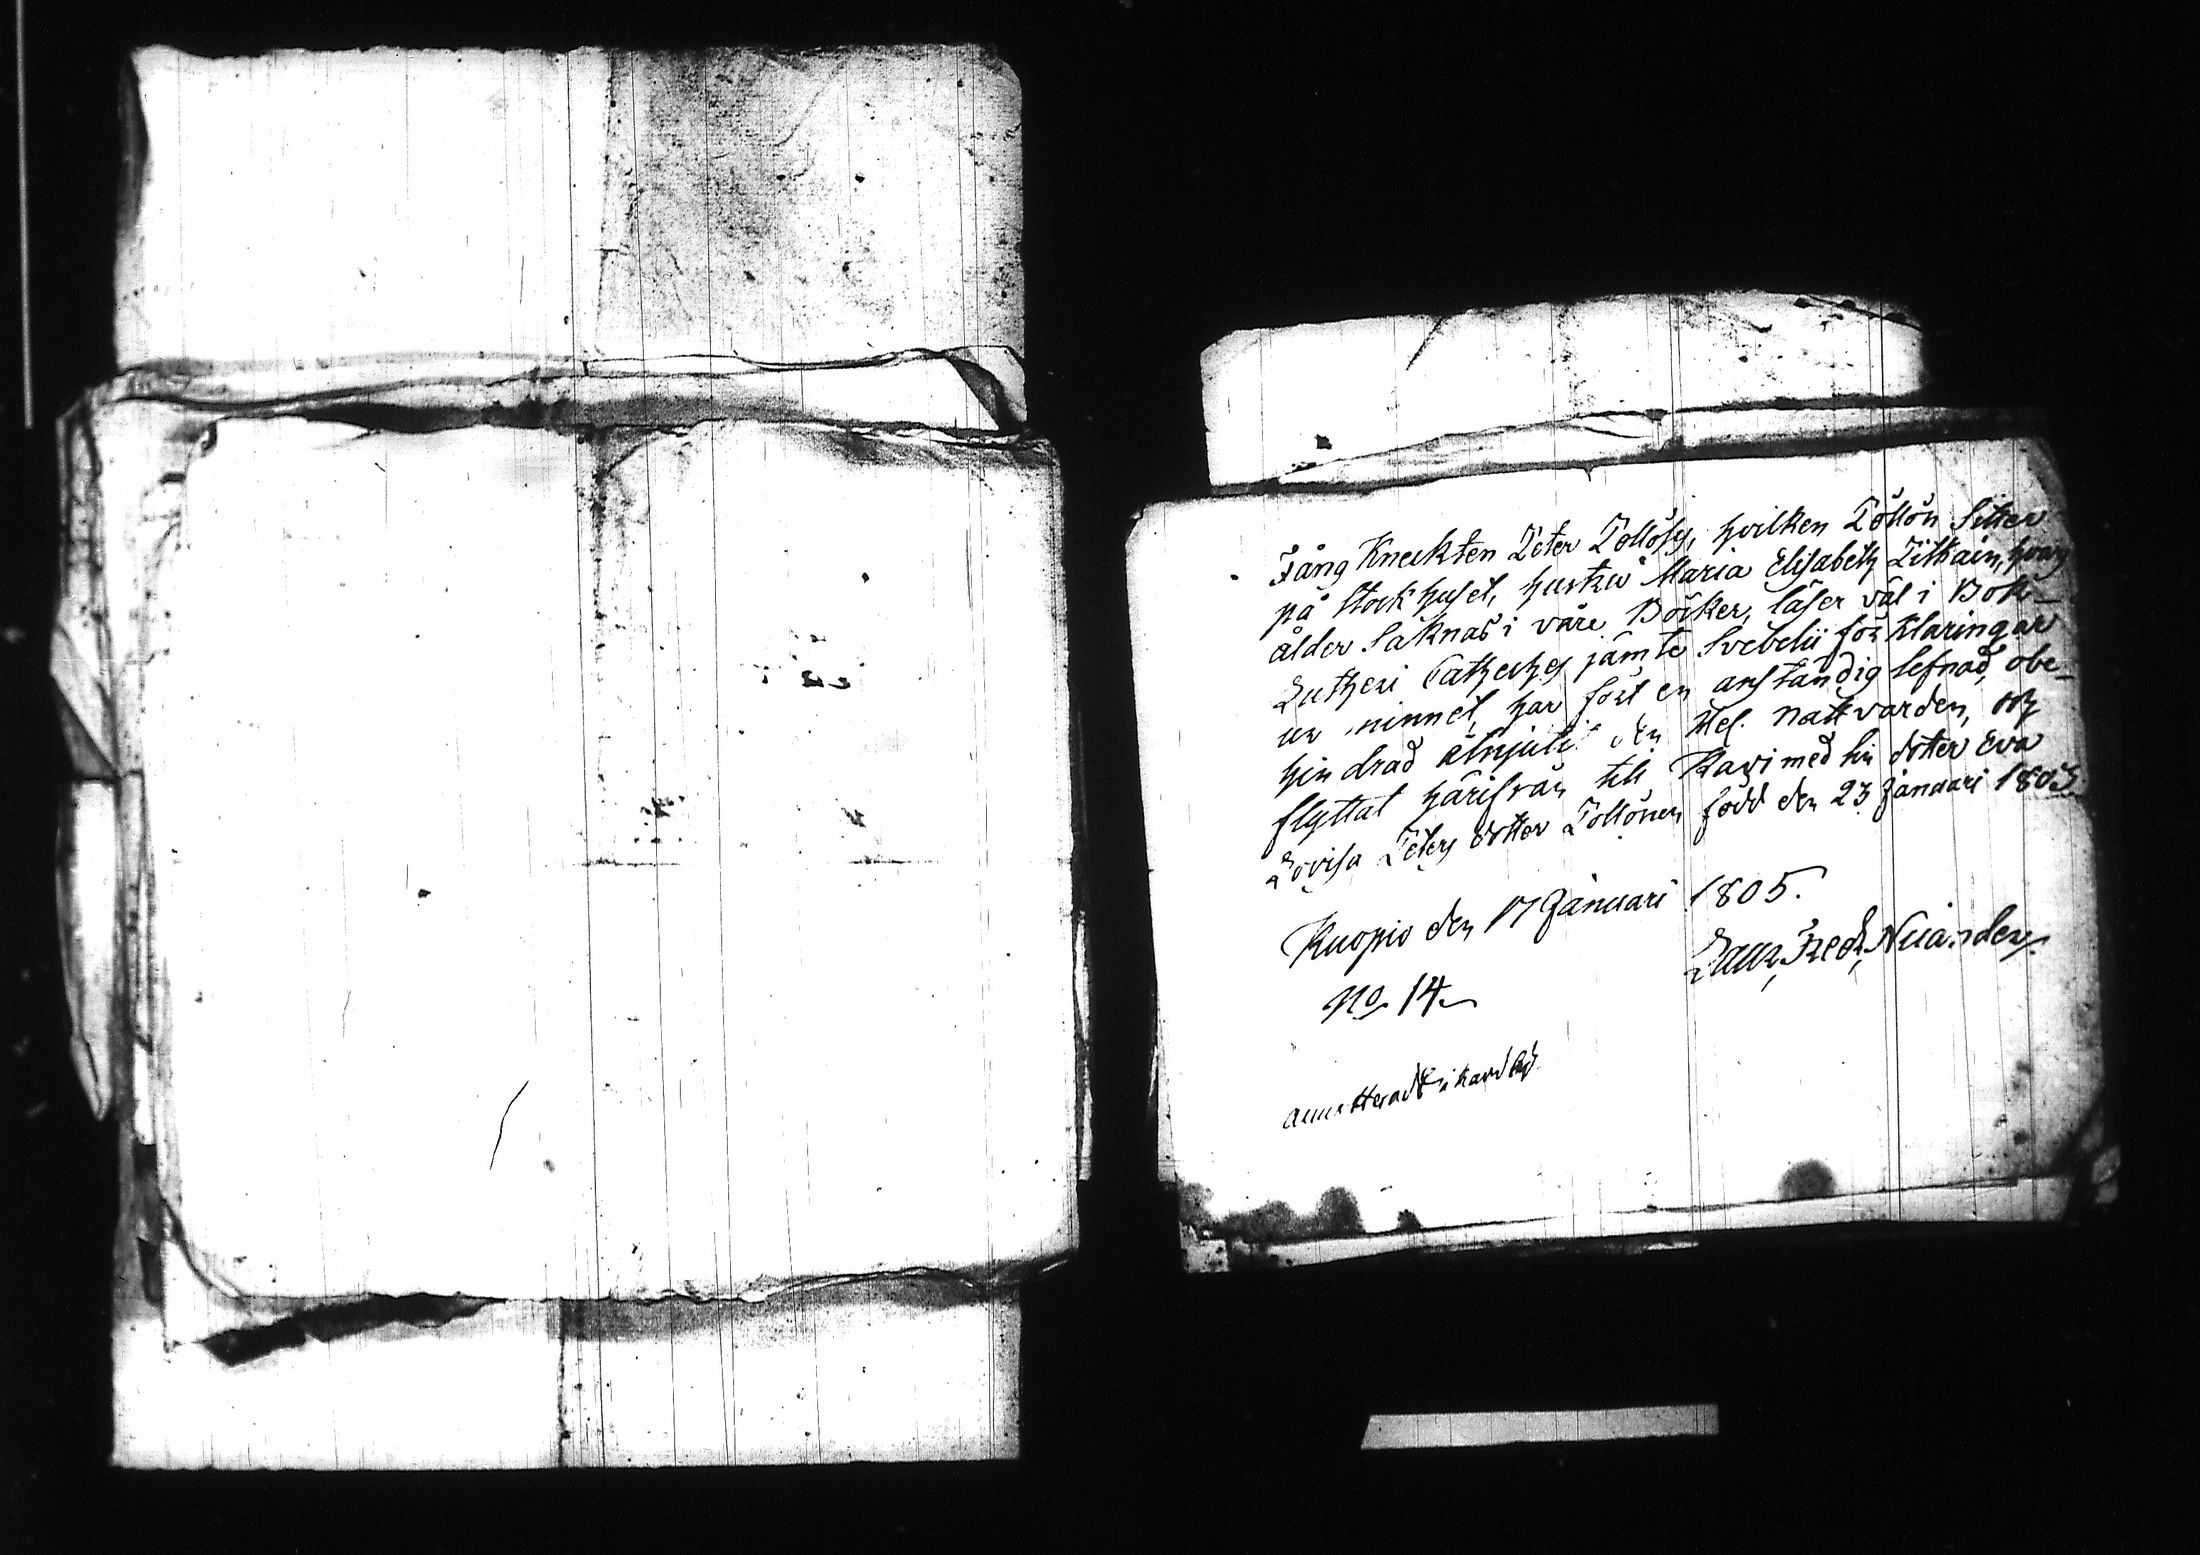 Fång Knecktén Peter Tollösz, hvilken Töllön Sitter
på Stockhuset, hustru Maria Elisabeth Titkain, hvars
ålder Saknas i våre Böcker, läser väl i Bok
Lutheri Cathechs jämte Svebelii förklaringar
ur minnet, har fört en anständig lefnad, obe-
hindrad åtnjutit den Hel. Nattvarden, och
flyttat härifrån till Kavi med sin dotter Eva
Lovisa Peters dotter Tollönen född den 23 Januari 1803.
Kuopio den 17 Januari 1805.
Laur. Fredr. Niiander.
No. 14